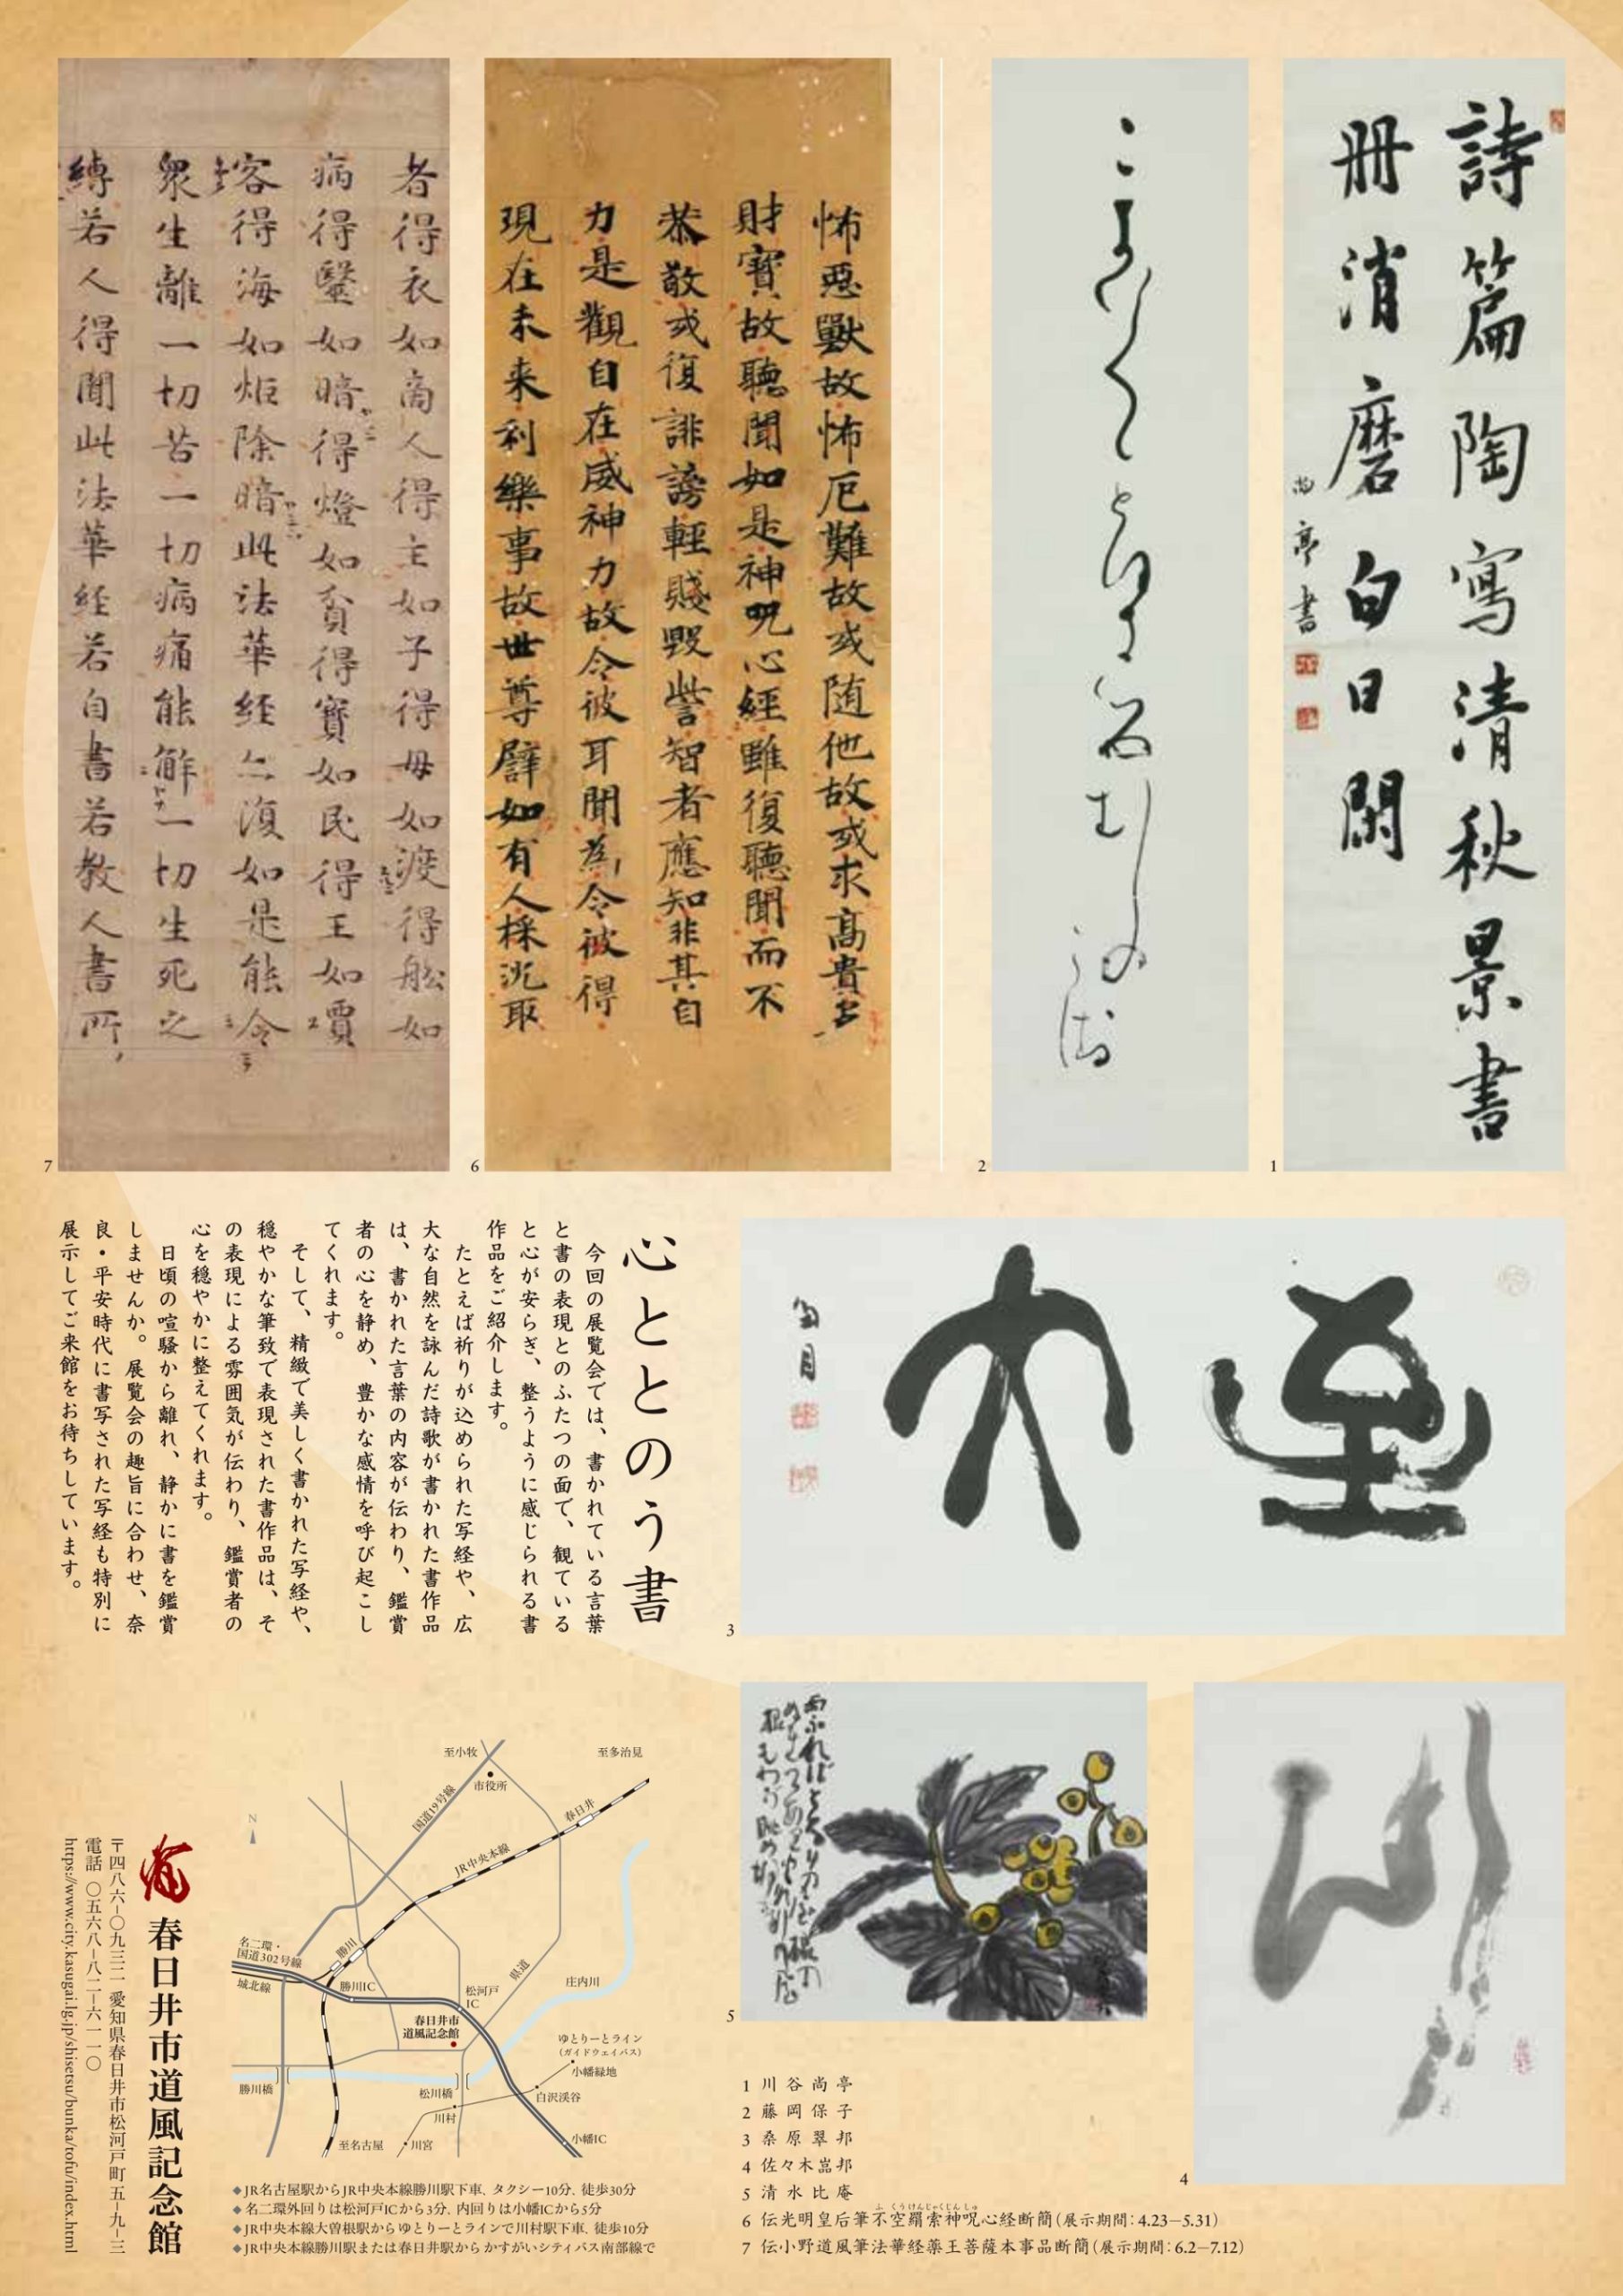 詩篇陶寫清秋景書
冊消磨白日閑
尚亭書
1
2
怖惡獸故怖厄難故或随他故或求高貴多
財寶故聽聞如是神呪心經雖復聽聞而不
恭敬或復誹謗輕賤毀訾智者應知非其自
力是觀自在威神力故令彼耳聞為令彼得
現在未来利樂事故世尊譬如有人採沈取
6
者得衣如商人得主如子得母如渡得舩如
病得毉如暗得燈如貧得寶如民得王如賈
客得海如炬除暗此法華経亦復如是能令
衆生離一切苦一切病痛能解一切生死之
縛若人得聞此法華経若自書若教人書所
7
3
心ととのう書
今回の展覧会では、書かれている言葉
と書の表現とのふたつの面で、観ている
と心が安らぎ、整うように感じられる書
作品をご紹介します。
たとえば祈りが込められた写経や、広
大な自然を詠んだ詩歌が書かれた書作品
は、書かれた言葉の内容が伝わり、鑑賞
者の心を静め、豊かな感情を呼び起こし
てくれます。
そして、精緻で美しく書かれた写経や、
穏やかな筆致で表現された書作品は、そ
の表現による雰囲気が伝わり、鑑賞者の
心を穏やかに整えてくれます。
日頃の喧騒から離れ、静かに書を鑑賞
しませんか。展覧会の趣旨に合わせ、奈
良・平安時代に書写された写経も特別に
展示してご来館をお待ちしています。
4
5
1 川谷尚亭
2 藤岡保子
3 桑原翠邦
4 佐々木嵓邦
5 清水比庵
6 伝光明皇后筆不空羂索神呪心経断簡(展示期間:4.23–5.31)
ふくうけんじゃくじんしゅ
7 伝小野道風筆法華経薬王菩薩本事品断簡(展示期間:6.2–7.12)
至小牧
至多治見
市役所
国道19号線
春日井
JR中央本線
N
名二環・
国道302号線
勝川
城北線
勝川IC
松河戸
IC
県道
庄内川
春日井市
道風記念館
ゆとりーとライン
(ガイドウェイバス)
小幡緑地
勝川橋
松川橋
白沢渓谷
川村
至名古屋
川宮
小幡IC
◆JR名古屋駅からJR中央本線勝川駅下車、タクシー10分、徒歩30分
◆名二環外回りは松河戸ICから3分、内回りは小幡ICから5分
◆JR中央本線大曽根駅からゆとりーとラインで川村駅下車、徒歩10分
◆JR中央本線勝川駅または春日井駅からかすがいシティバス南部線で
春日井市道風記念館
〒四八六−〇九三二 愛知県春日井市松河戸町五−九−三
電話 〇五六八−八二−六一一〇
https://www.city.kasugai.lg.jp/shisetsu/bunka/tofu/index.html